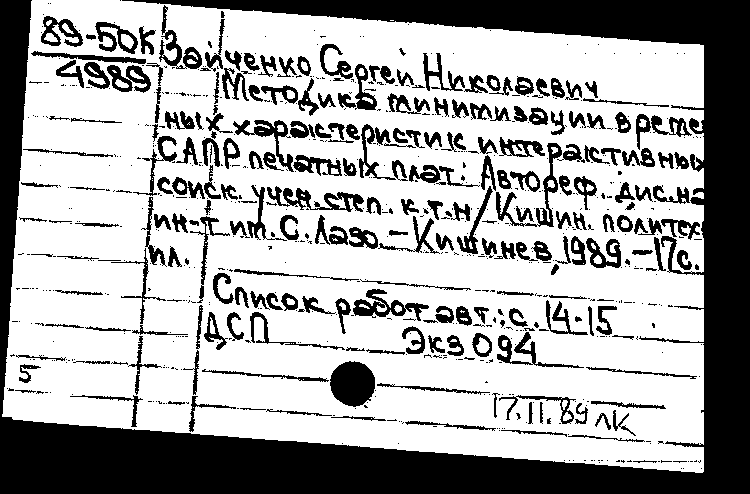 89-50К
4989
Зайченко Сергей Николаевич
Методика минимизации време
ных характеристик интерактивных
САПР печатных плат: Автореф. дис. на
соиск. учен. степ. к.т.н / Кишин. политех
ин-т им. С. Лазо. – Кишинев, 1989. – 17с.
ил.
Список работ авт.: с. 14-15
ДСП Экз 094
5
17.11.89 лк